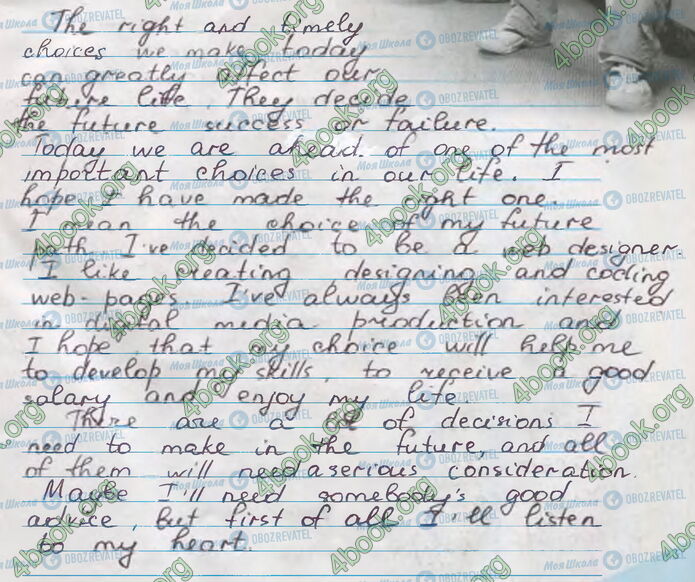 The right and timely
choices we make today
can greatly affect our
future life. They decide
the future success or failure.
Today we are ahead of one of the most
important choices in our life. I
hope I have made the right one.
I mean the choice of my future
path. I've decided to be a web designer.
I like creating designing and coding
web-pages. I've always been interested
in digital media production and
I hope that my choice will help me
to develop my skills, to receive a good
salary and enjoy my life.
There are a lot of decisions I
need to make in the future, and all
of them will need a serious consideration.
Maybe I'll need somebody's good
advice, but first of all I'll listen
to my heart.